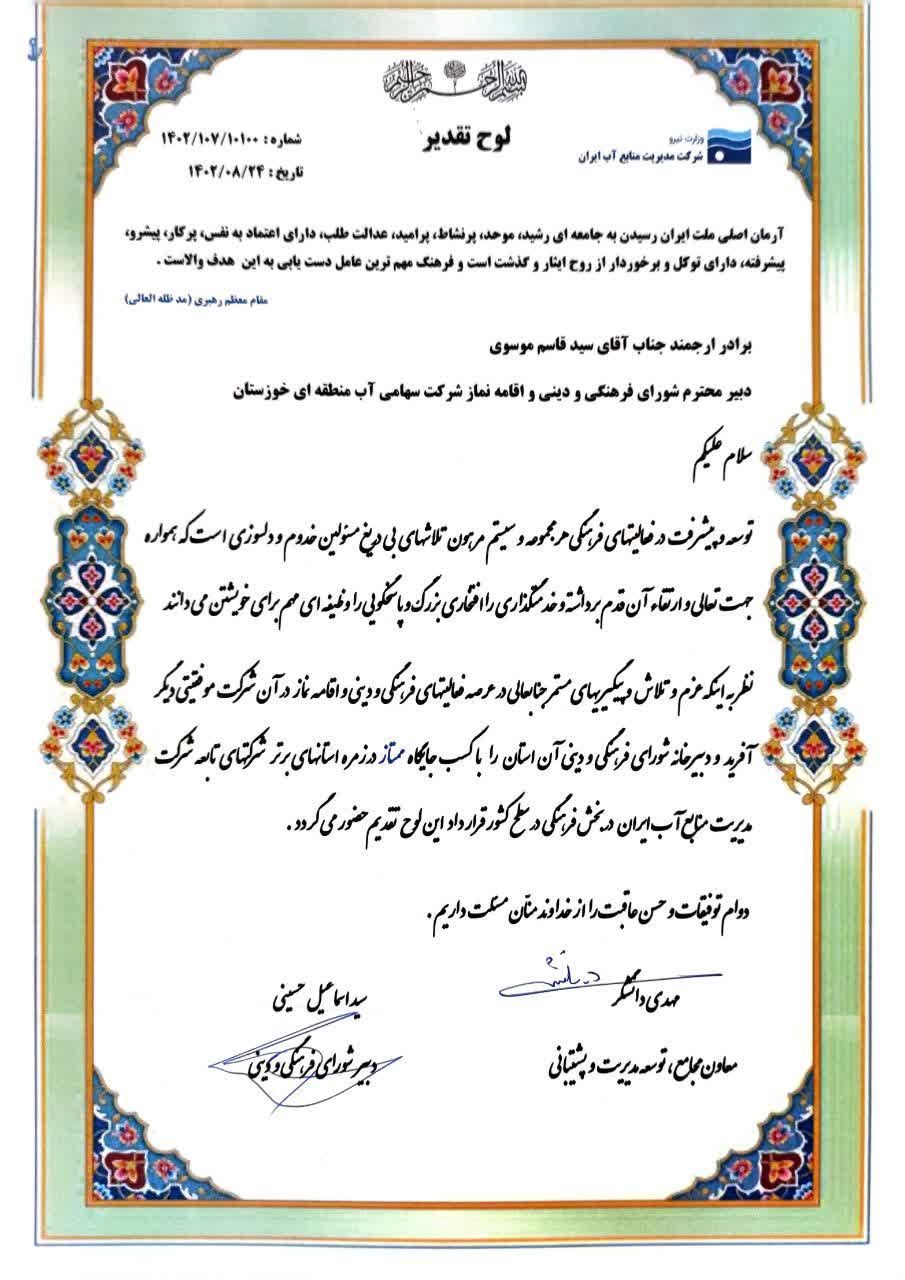 بسم الله الرحمن الرحیم
لوح تقدیر
وزارت نیرو
شرکت مدیریت منابع آب ایران
شماره : ۱۴۰۲/۱۰۷/۱۰۱۰۰
تاریخ : ۱۴۰۲/۰۸/۲۴
آرمان اصلی ملت ایران رسیدن به جامعه ای رشید، موحد، پرنشاط، پرامید، عدالت طلب، دارای اعتماد به نفس، پرکار، پیشرو،
پیشرفته، دارای توکل و برخوردار از روح ایثار و گذشت است و فرهنگ مهم ترین عامل دست یابی به این هدف والاست .
مقام معظم رهبری (مد ظله العالی)
برادر ارجمند جناب آقای سید قاسم موسوی
دبیر محترم شورای فرهنگی و دینی و اقامه نماز شرکت سهامی آب منطقه ای خوزستان
سلام علیکم
توسعه و پیشرفت در فعالیتهای فرهنگی هر مجموعه و سیستم مرهون تلاشهای بی دریغ مسئولین خدوم و دلسوزی است که همواره
جهت تعالی و ارتقاء آن قدم برداشته و خدمتگذاری را افتخاری بزرگ و پاسخگویی را وظیفه ای مهم برای خویشتن می دانند
نظر به اینکه عزم و تلاش و پیگیریهای مستمر جنابعالی در عرصه فعالیتهای فرهنگی و دینی و اقامه نماز در آن شرکت موفقیتی دیگر
آفرید و دبیرخانه شورای فرهنگی و دینی آن استان را با کسب جایگاه ممتاز در زمره استانهای برتر شرکتهای تابعه شرکت
مدیریت منابع آب ایران در بخش فرهنگی در سطح کشور قرار داد این لوح تقدیم حضور می گردد .
دوام توفیقات و حسن عاقبت را از خداوند منّان مسئلت داریم .
مهدی دانشگر
معاون مجامع، توسعه مدیریت و پشتیبانی
سید اسماعیل حسینی
دبیر شورای فرهنگی و دینی